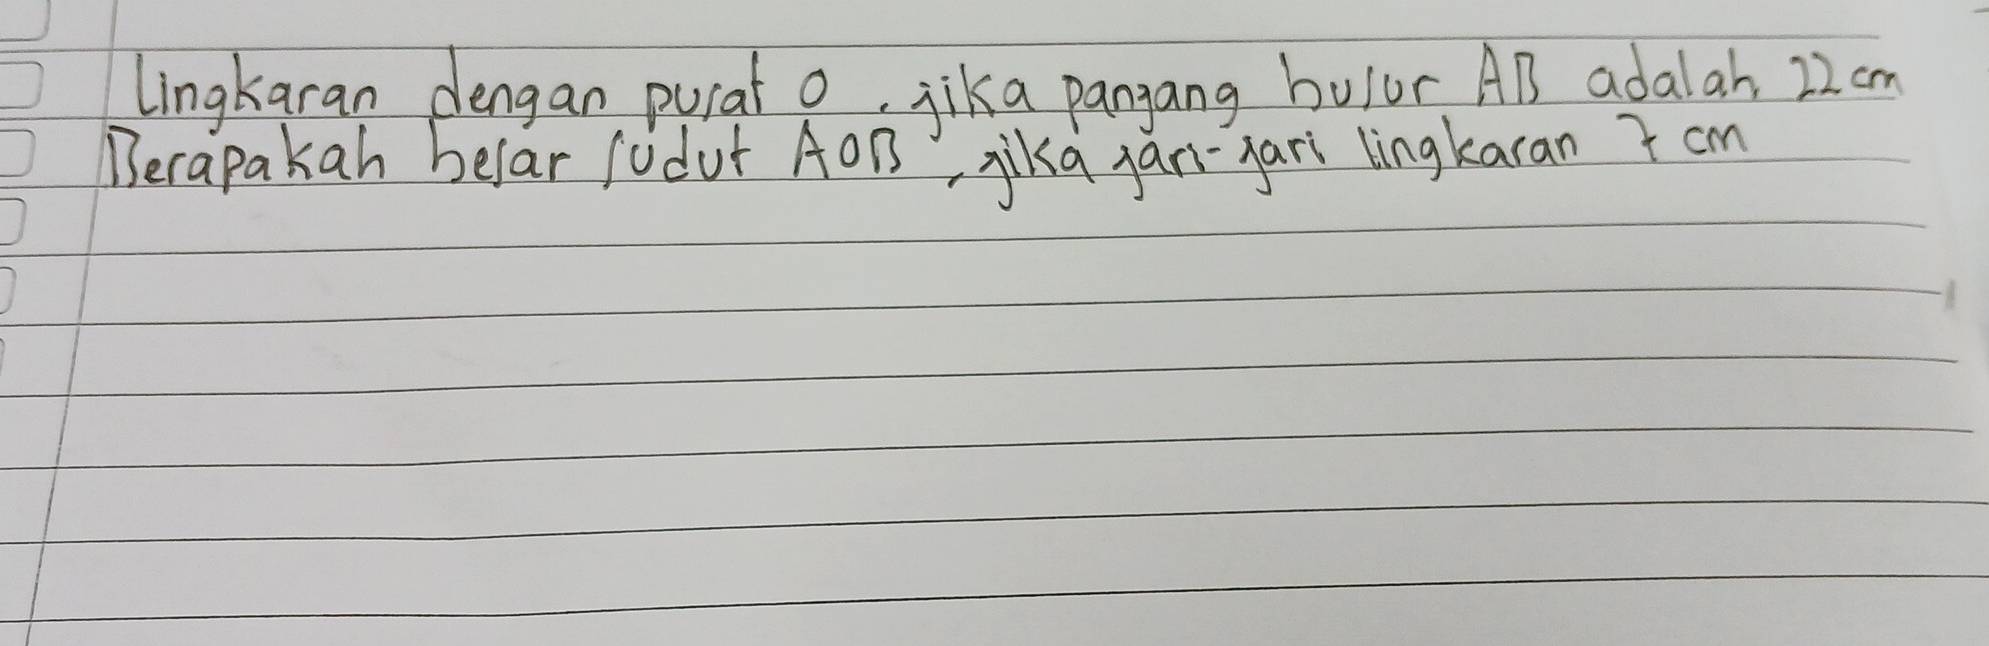 Lingkaran dengan pusat O, jika panjang busur AB adalah 22 cm
Berapakah besar sudut AOB, jika jari-jari lingkaran 7 cm